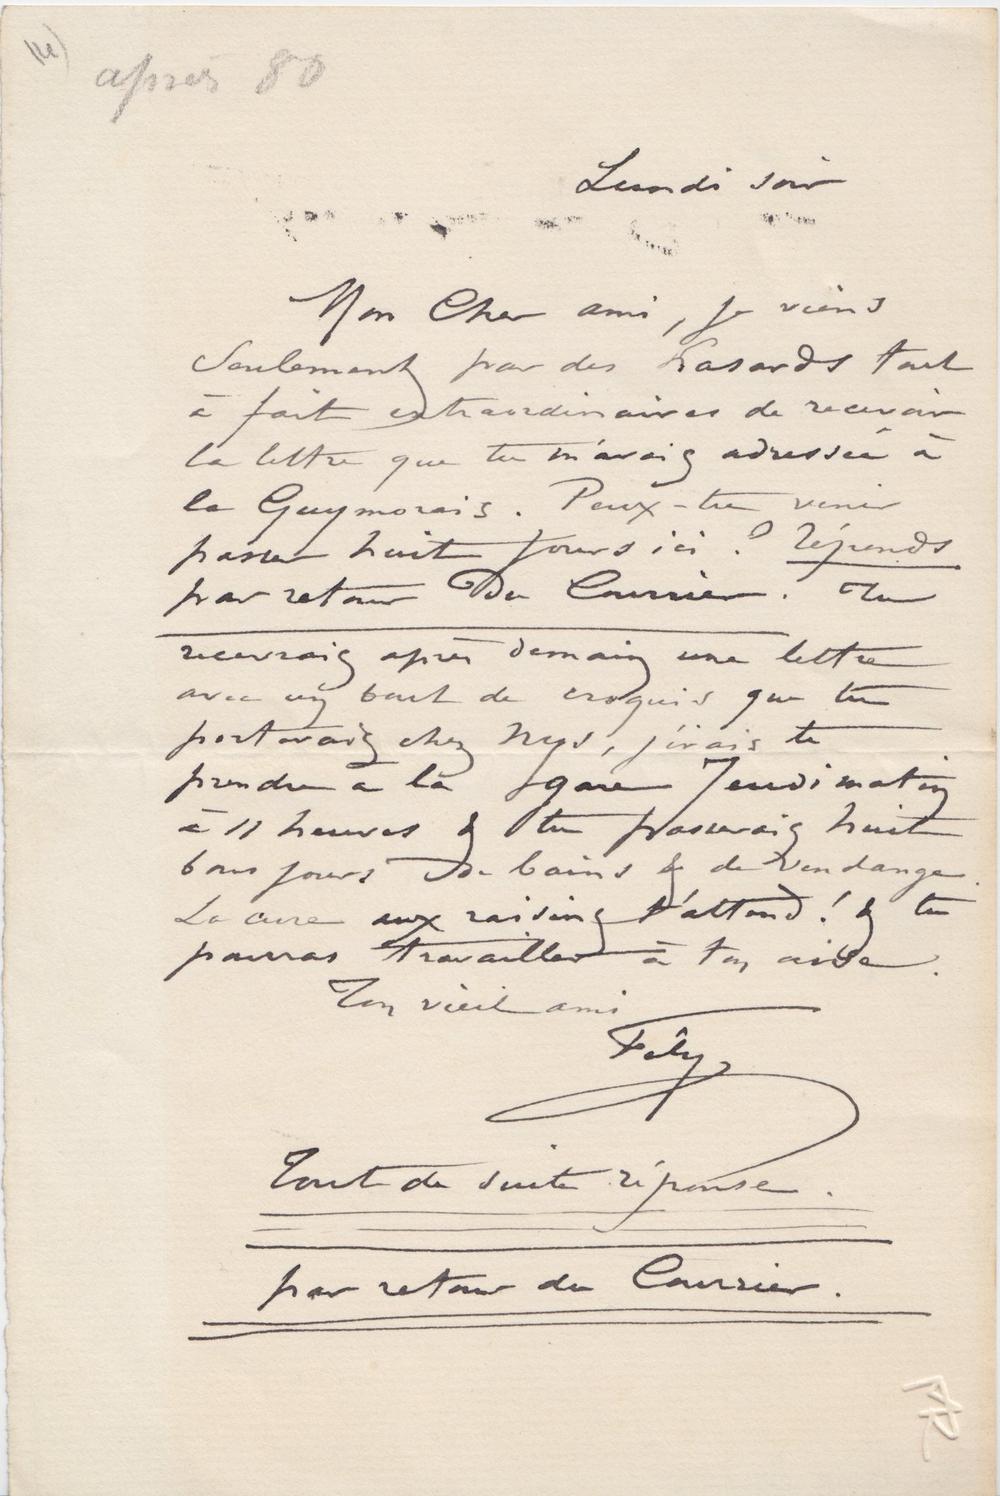 après 80
Lundi soir
Mon Cher ami, je viens
Seulement par des hasards tout
à fait extraordinaires de recevoir
la lettre que tu m'avais adressée à
la Guymorais. Peux-tu venir
passer huit jours ici ? Réponds
par retour Du Courrier. Tu
recevrais après demain une lettre
avec un bout de croquis que tu
porterais chez Nys, j'irais te
prendre à la gare Jeudi matin
à 11 heures & tu passerais huit
bons jours De bains & de vendange.
La cure aux raisins t'attend ! & tu
pourras travailler à ton aise.
Ton vieil ami
Fély
Tout de suite réponse.
par retour du Courrier.